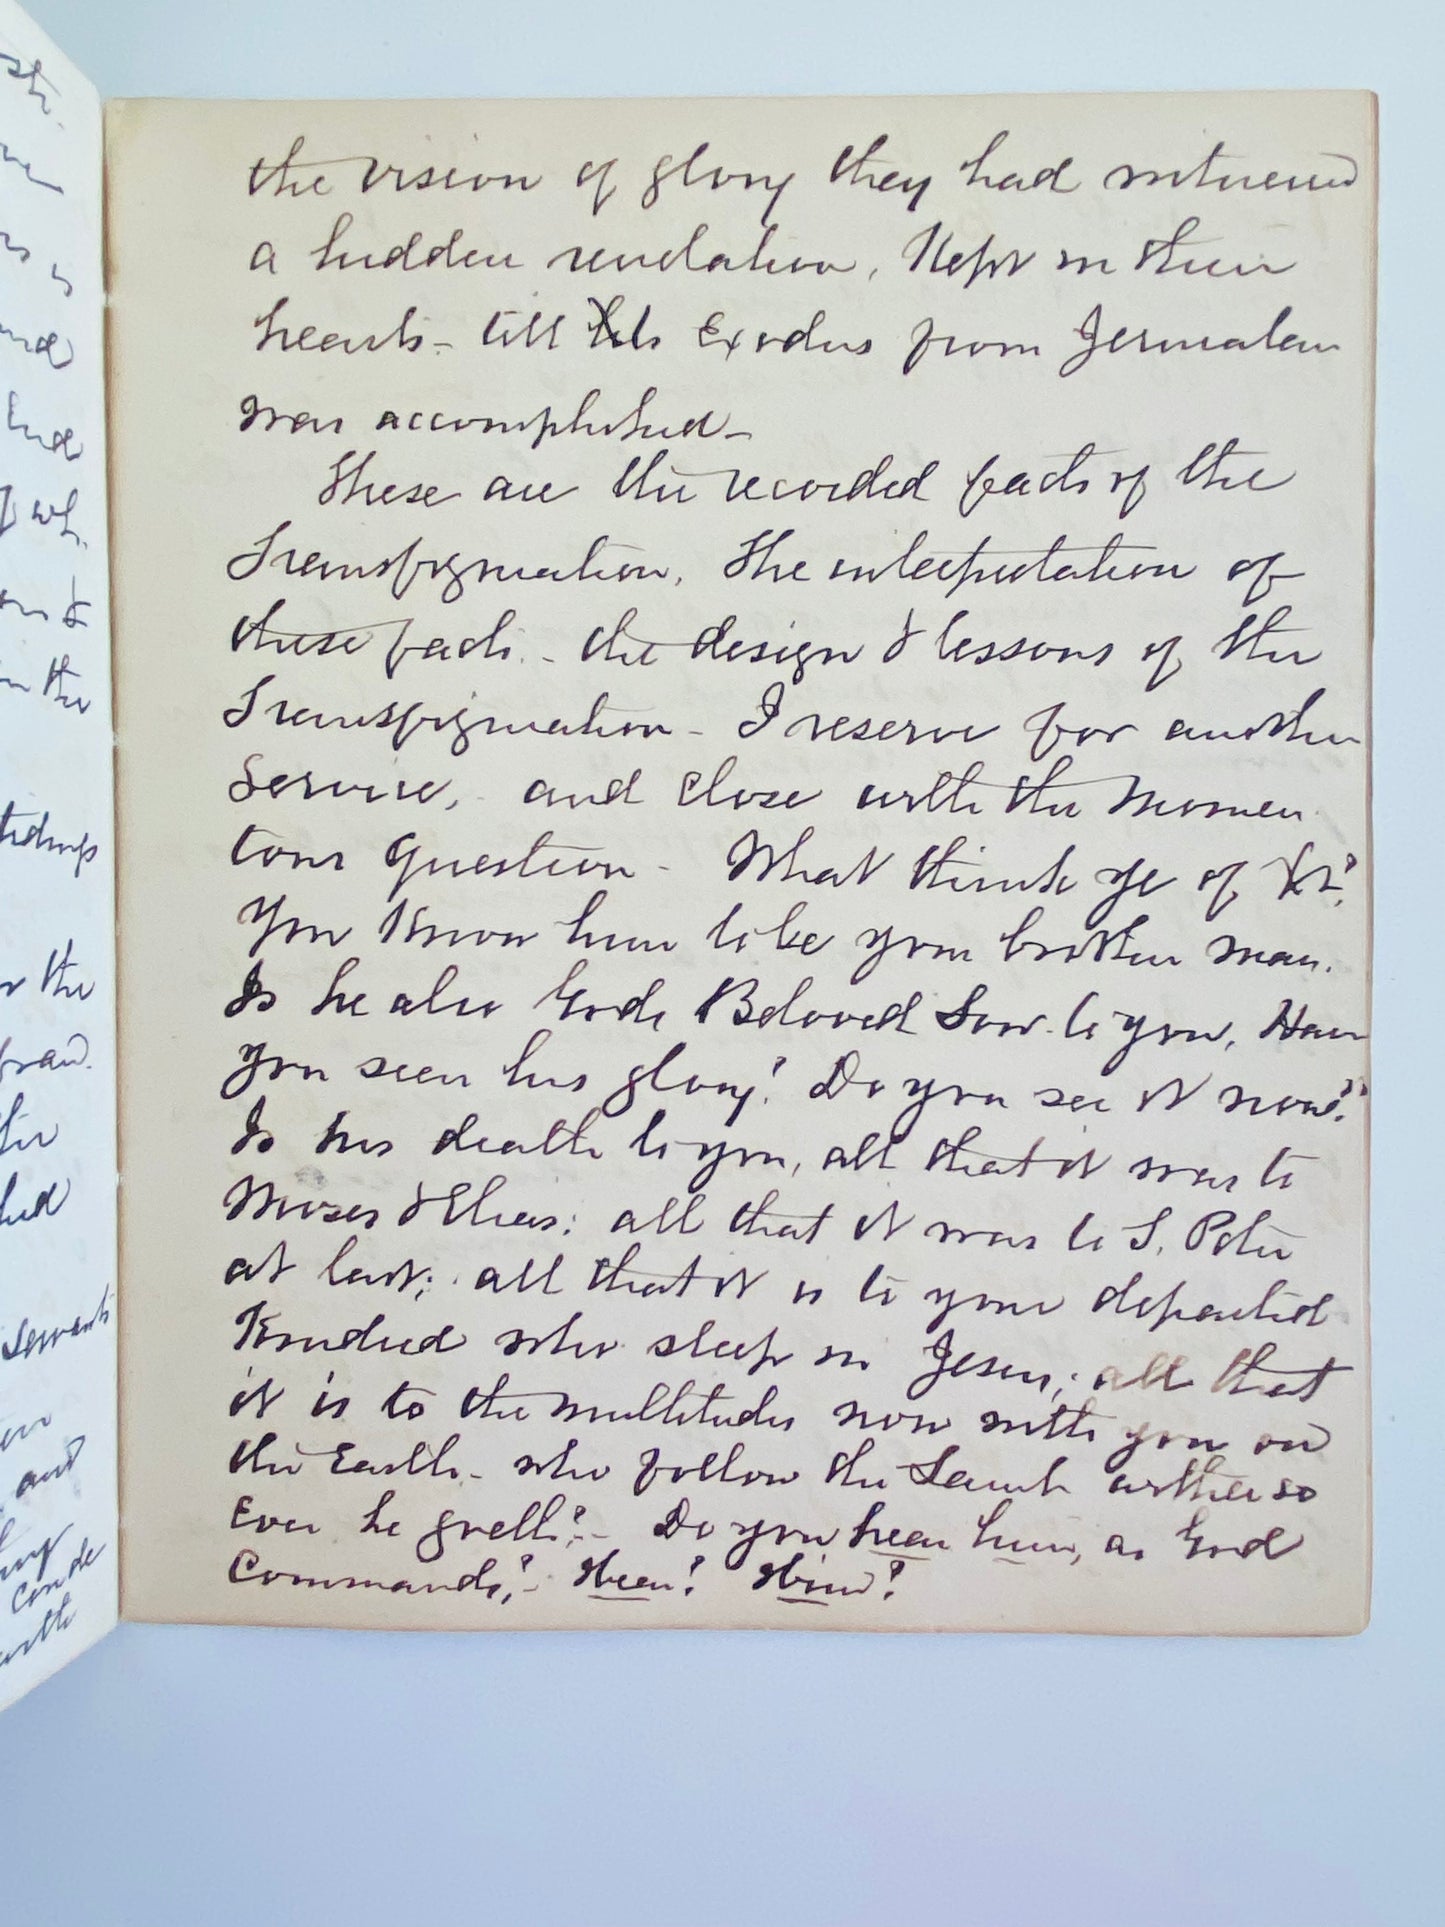 the vision of glory they had witnessed
a hidden revelation, Kept in their
hearts - till Xt's Exodus from Jerusalem
was accomplished -
These are the recorded facts of the
Transfiguration. The interpretation of
these facts. - the design & lessons of the
Transfiguration - I reserve for another
Service, - and close with the Momen
tous Question - What think ye of Xt?
You Know him to be your brother man.
Is he also Gods Beloved Son to you, Have
you seen his glory? Do you see it now?
Is his death to you, all that it was to
Moses & Elias: all that it was to S. Peter
at last; all that it is to your departed
Kindred who sleep in Jesus; all that
it is to the multitudes now with you on
the Earth - who follow the Lamb whitherso
Ever he goeth? - Do you hear him, as God
Commands? - Hear? Him?
wh.
in the
tidings
the
Servants
and
with